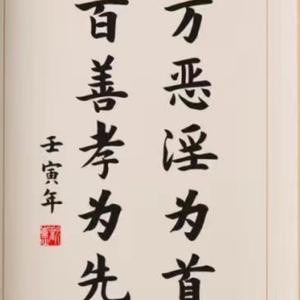 万恶淫为首
百善孝为先
壬寅年